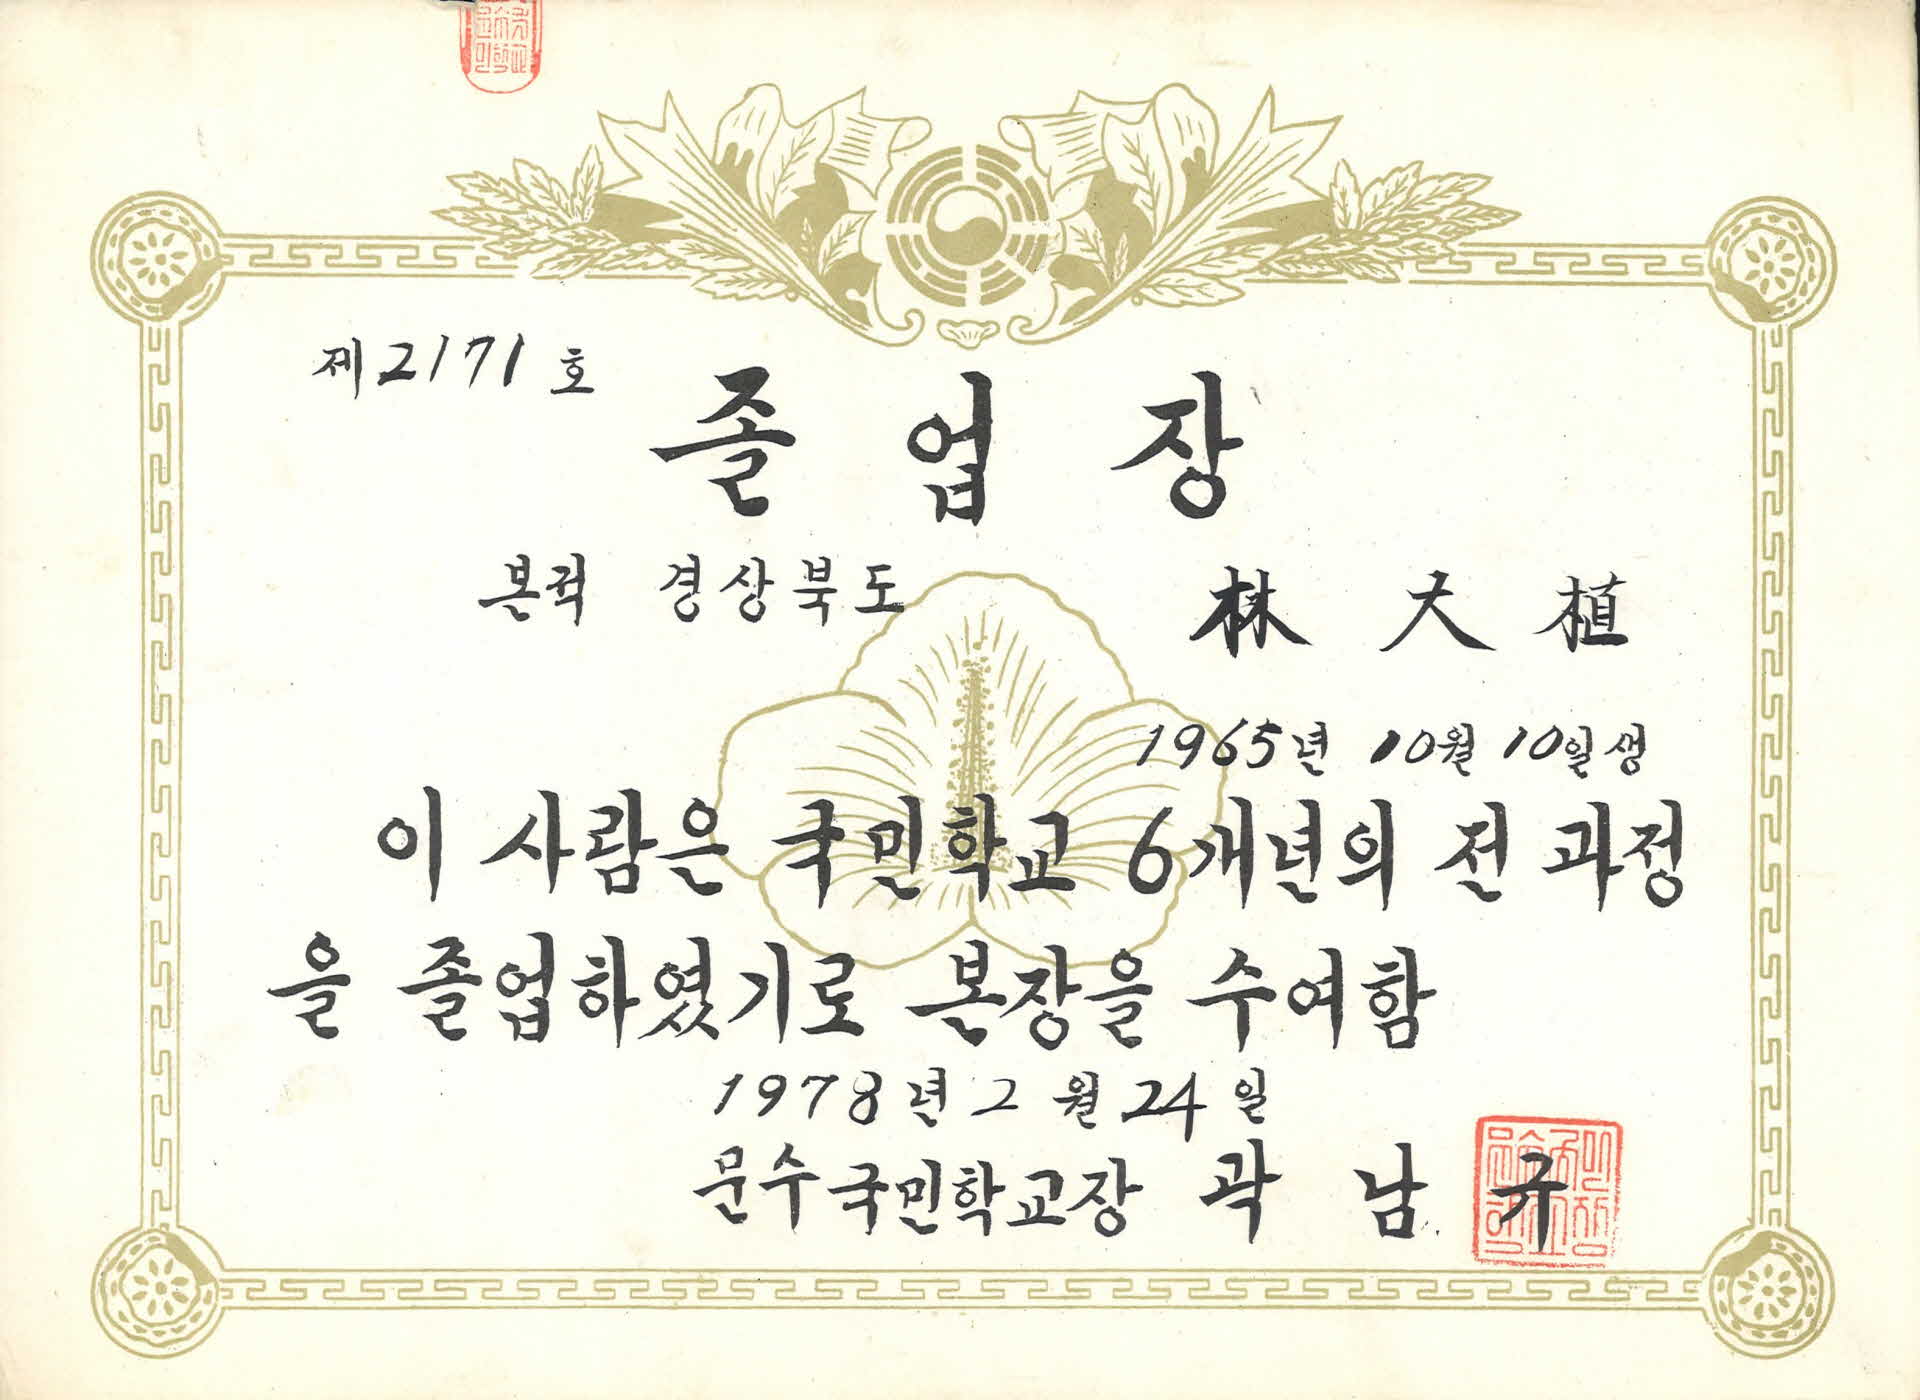 제2171호
졸업장
본적 경상북도
林大植
1965년 10월 10일생
이 사람은 국민학교 6개년의 전 과정
을 졸업하였기로 본장을 수여함
1978년 2월 24일
문수국민학교장 곽남규